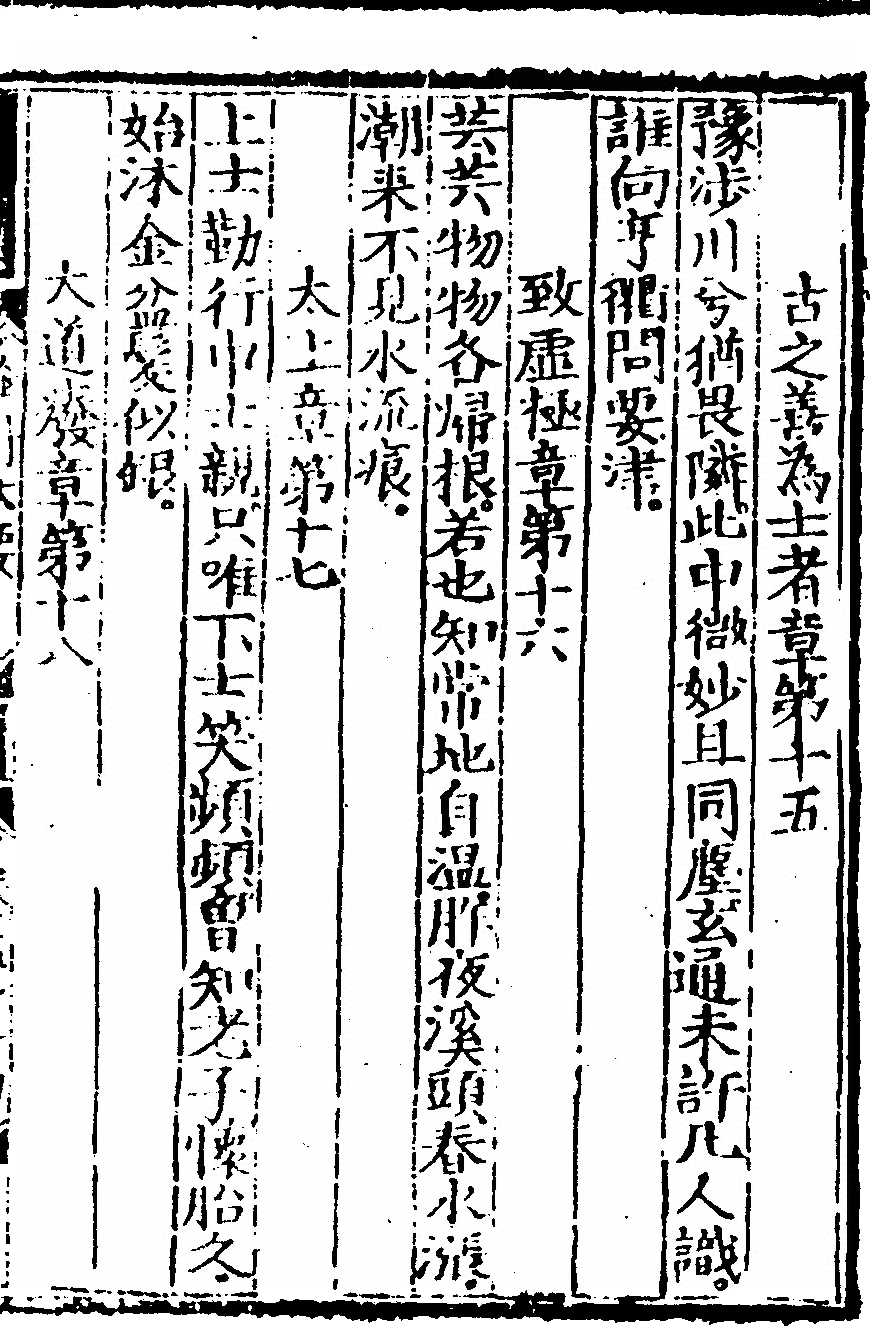 古之善為士者章第十五
豫涉川兮猶畏隣。此中微妙且同塵。玄通未許凡人識。
誰向亨衢問要津。
致虛極章第十六
芸芸物物各帰根。若也知常地自温。昨夜溪頭春水漲。
潮来不見水流痕。
太上章第十七
上士勤行中士親。只唯下士笑頻頻。曾知老子懷胎久。
始沐金盆髮似銀。
大道廢章第十八